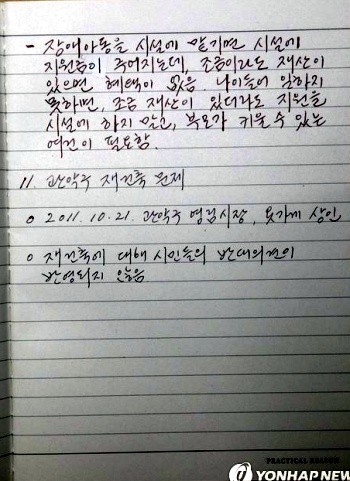 - 장애아동을 시설에 맡기면 시설에
지원금이 주어지는데, 조금이라도 재산이
있으면 혜택이 없음. 나이들어 일하지
못하면, 조금 재산이 있더라도 지원을
시설에 하지 말고, 부모가 키울 수 있는
여건이 필요함.
11. 관악구 재건축 문제
o 2011.10.21. 관악구 영림시장, 옷가게 상인
o 재건축에 대해 시민들의 반대의견이
반영되지 않음
PRACTICAL
YONHAP NEW